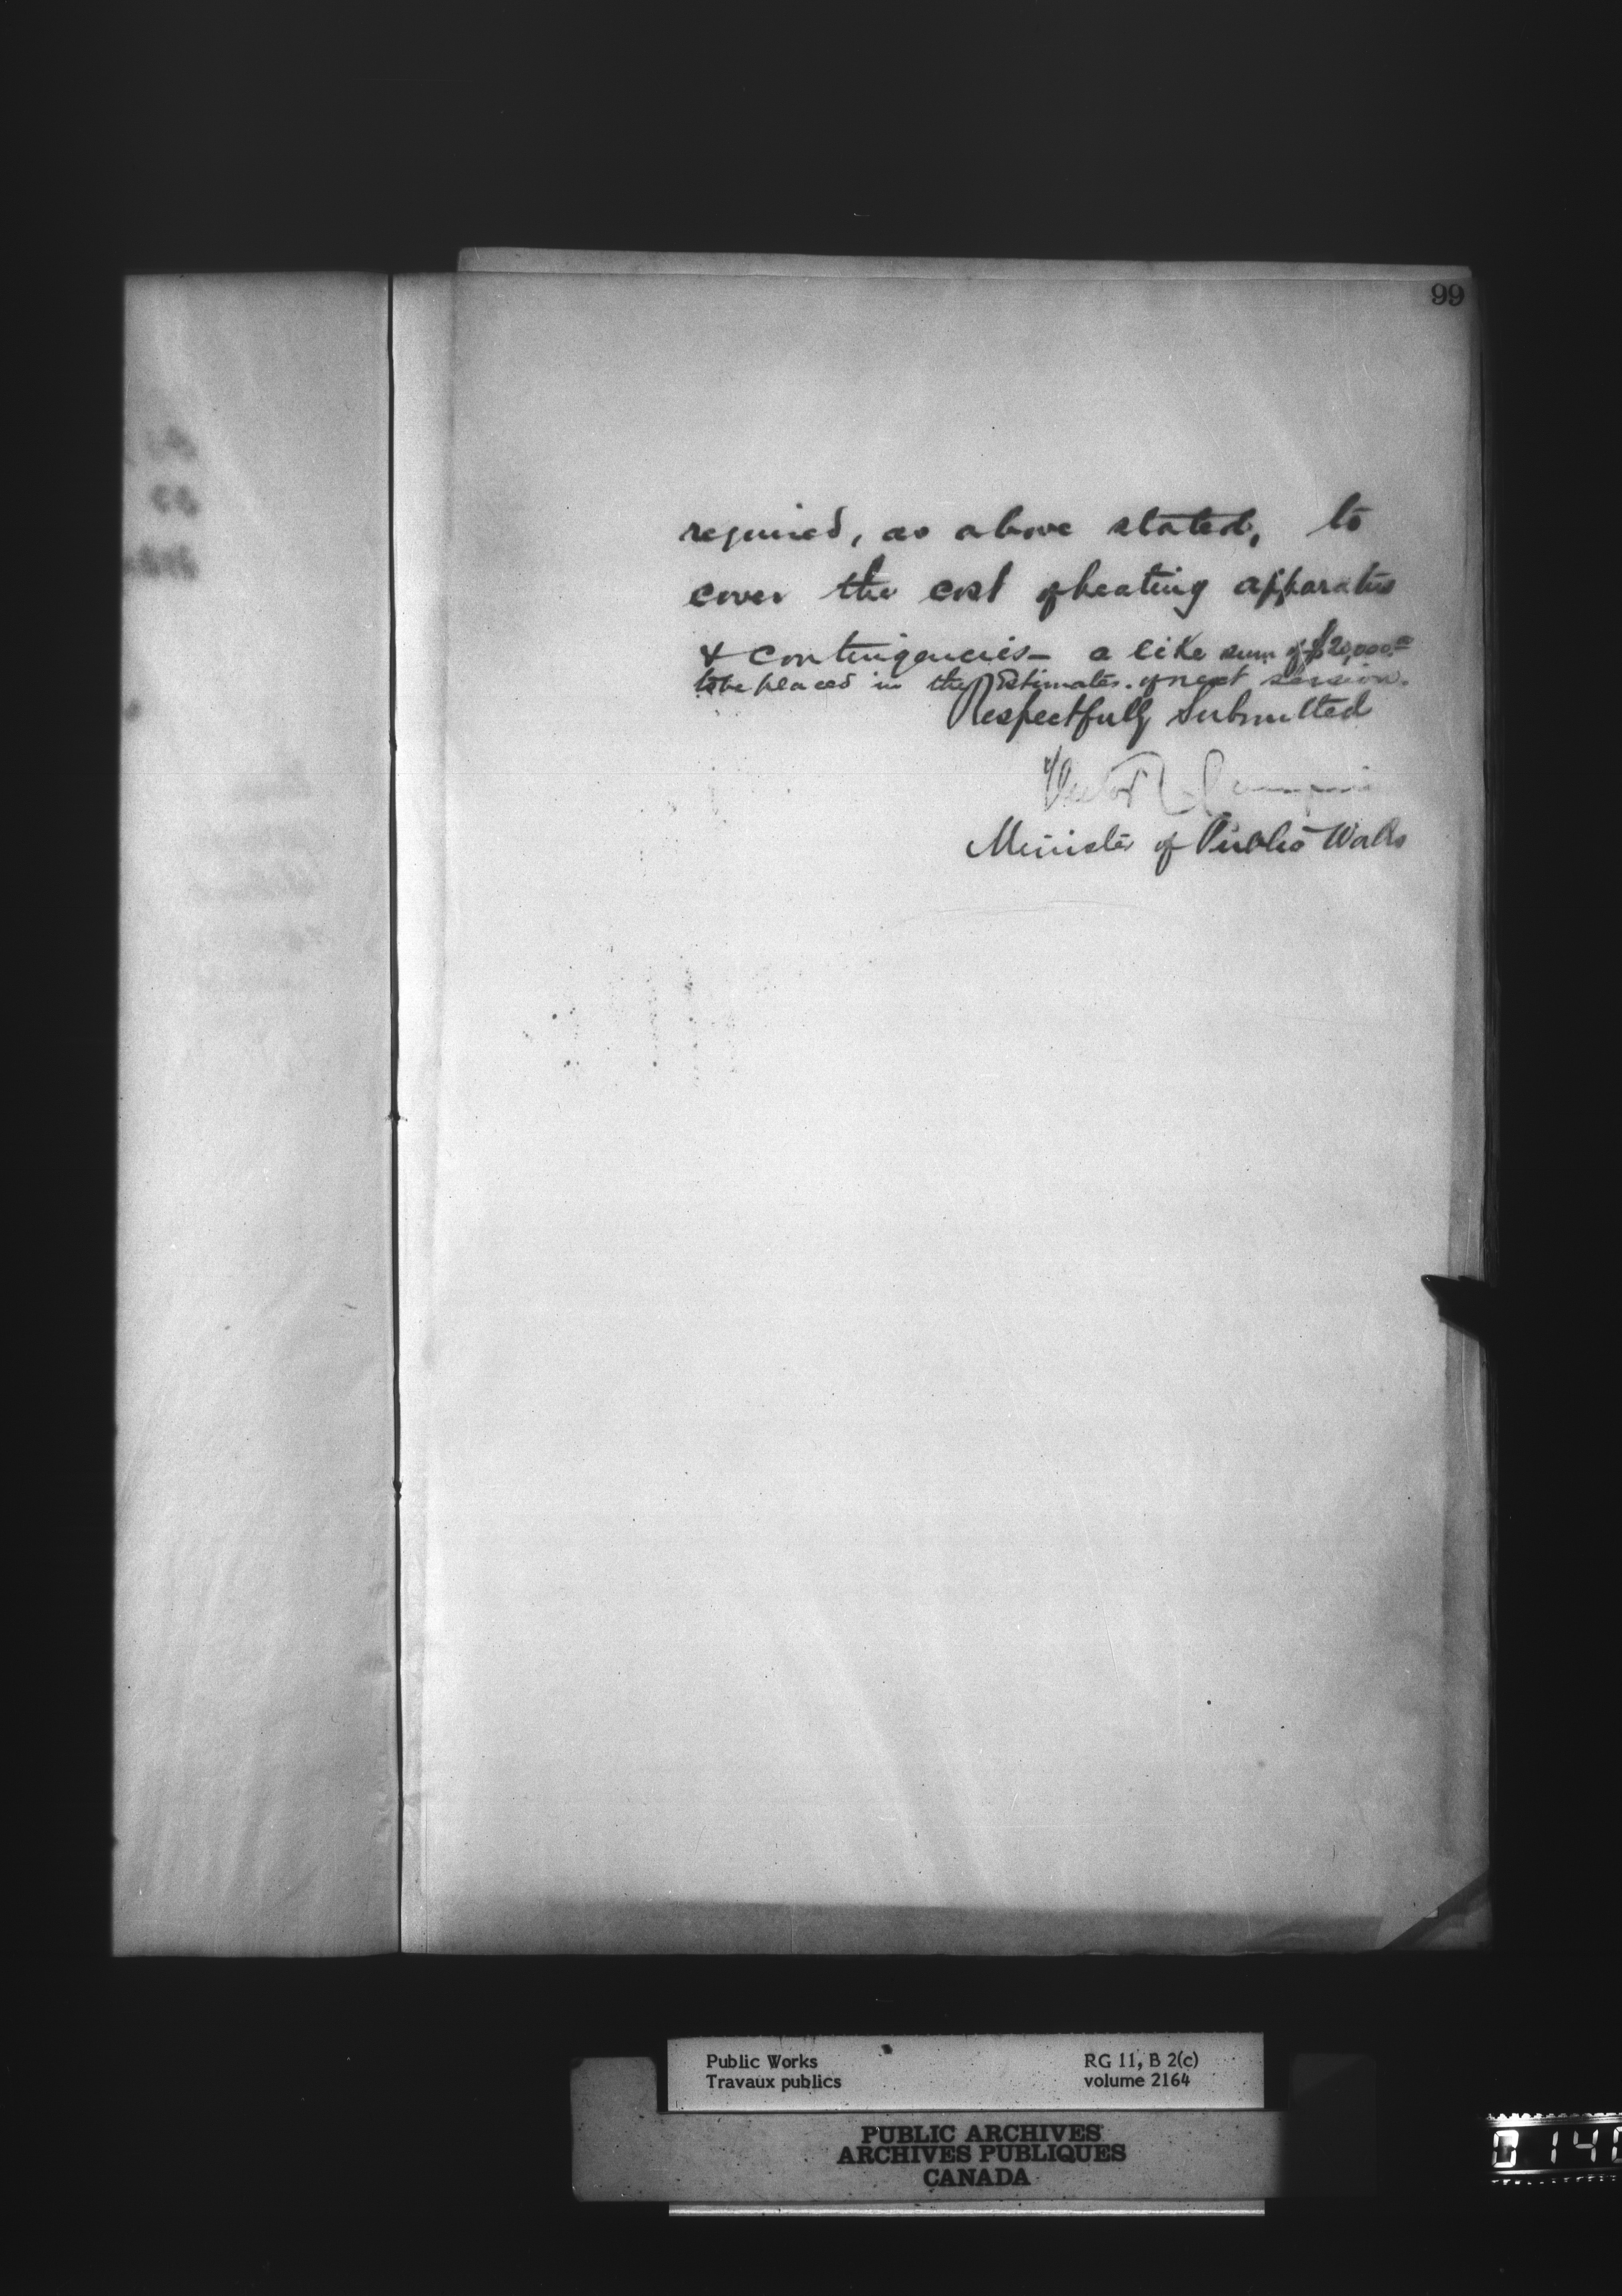 99
required, as above stated, to
cover the cost of heating apparatus
& contingencies - a like sum of $20,000.00
to be placed in the Estimates of next session.
Respectfully Submitted
Minister of Public Works
Public Works
Travaux publics
RG 11, B 2(c)
volume 2164
PUBLIC ARCHIVES
ARCHIVES PUBLIQUES
CANADA
0140